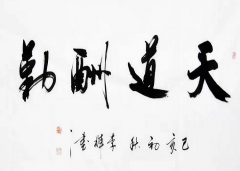 天道酬勤
己亥初秋李辉書